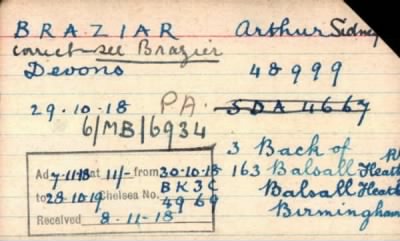 BRAZIAR Arthur Sidney
correct see Brazier
Devons 48999
29.10.18 PA. SDA 4667
6/MB/6934
3 Back of
163 Balsall Heath
Balsall Heath
Birmingham
Ad 7-11-18 at 11/- from 30-10-18
to 28-10-19 Chelsea No. BK3C
4969
Received 8-11-18